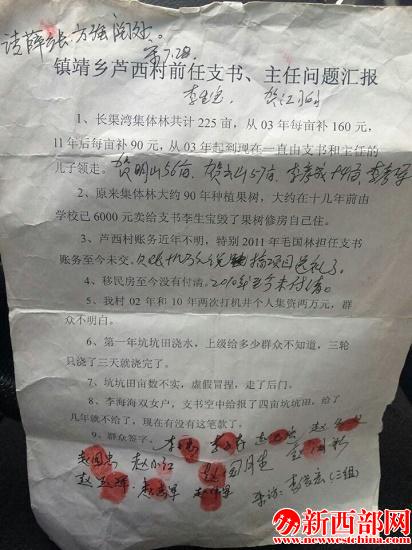 请薛乡长方强阅处。
7.28
镇靖乡芦西村前任支书、主任问题汇报
李生宝 贺江
1、长渠湾集体林共计 225 亩，从 03 年每亩补 160 元，
11 年后每亩补 90 元，从 03 年起到现在一直由支书和主任的
儿子领走。贺明山56亩
2、原来集体林大约 90 年种植果树，大约在十几年前由
学校已 6000 元卖给支书李生宝毁了果树修房自己住。
3、芦西村账务近年不明，特别 2011 年毛国林担任支书
账务至今未交。搞项目送礼了。
4、移民房至今没有付清。2010年至今未付清。
5、我村 02 年和 10 年两次打机井个人集资两万元，群
众不明白。
6、第一年坑坑田浇水，上级给多少群众不知道，三轮
只浇了三天就浇完了。
7、坑坑田亩数不实，虚假冒捏，走了后门。
8、李海海双女户，支书空中给报了四亩坑坑田，给了
几年就不给了，现在有没有这笔款了。
9、群众签字。
赵国忠 赵小红
新西部网
www.newestchina.com